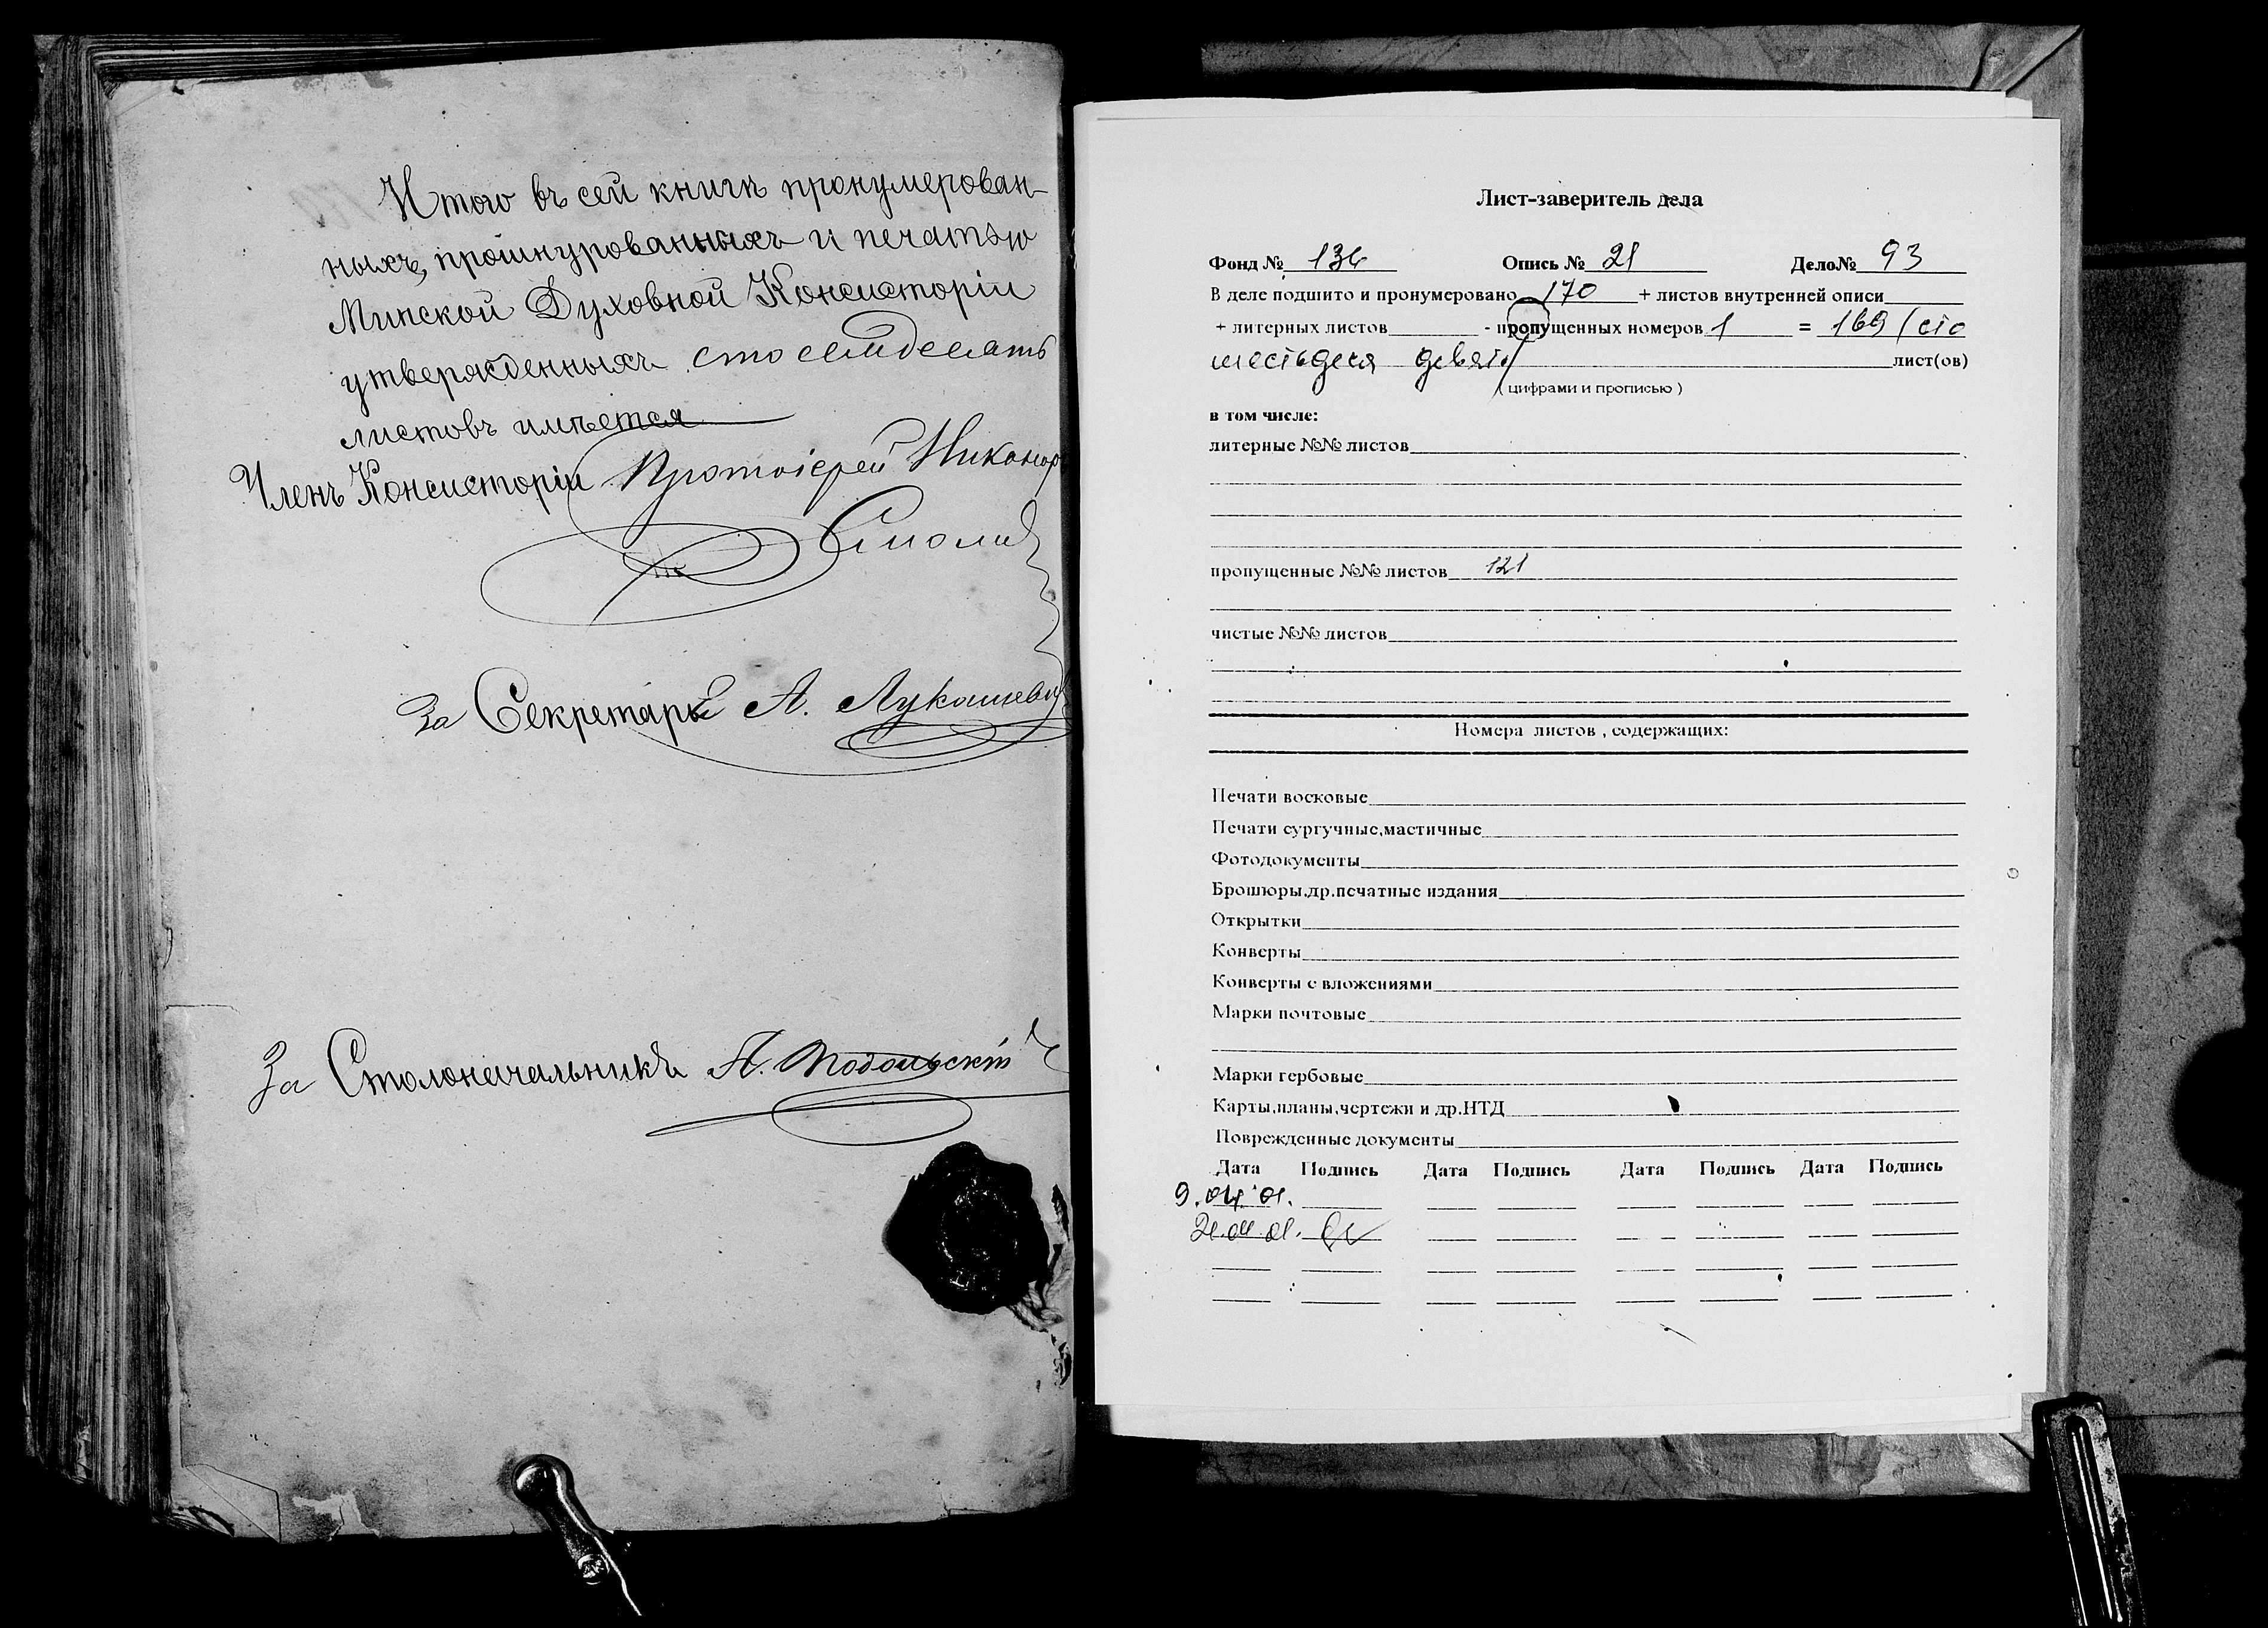 Итого въ сей книгѣ пронумерован-
ныхъ, прошнурованныхъ и печатью
Минской Духовной Консисторіи
утвержденныхъ сто семдесять
листовъ имѣется
Членъ Консисторіи Протоіерей Никанор
Смолич
За Секретаря А. Лукашеви
За Столоначальника А. Подольскій
Лист-заверитель дела
Фонд № 136 Опись № 21 Дело№ 93
В деле подшито и пронумеровано 170 + листов внутренней описи
+ литерных листов - пропущенных номеров 1 = 169 (сто
шестьдеся девять) лист(ов)
( цифрами и прописью )
в том числе:
литерные №№ листов
пропущенные №№ листов 121
чистые №№ листов
Номера листов , содержащих:
Печати восковые
Печати сургучные,мастичные
Фотодокументы
Брошюры,др.печатные издания
Открытки
Конверты
Конверты с вложениями
Марки почтовые
Марки гербовые
Карты,планы,чертежи и др.НТД
Поврежденные документы
Дата Подпись Дата Подпись Дата Подпись Дата Подпись
9.04.01.
21.04.01.